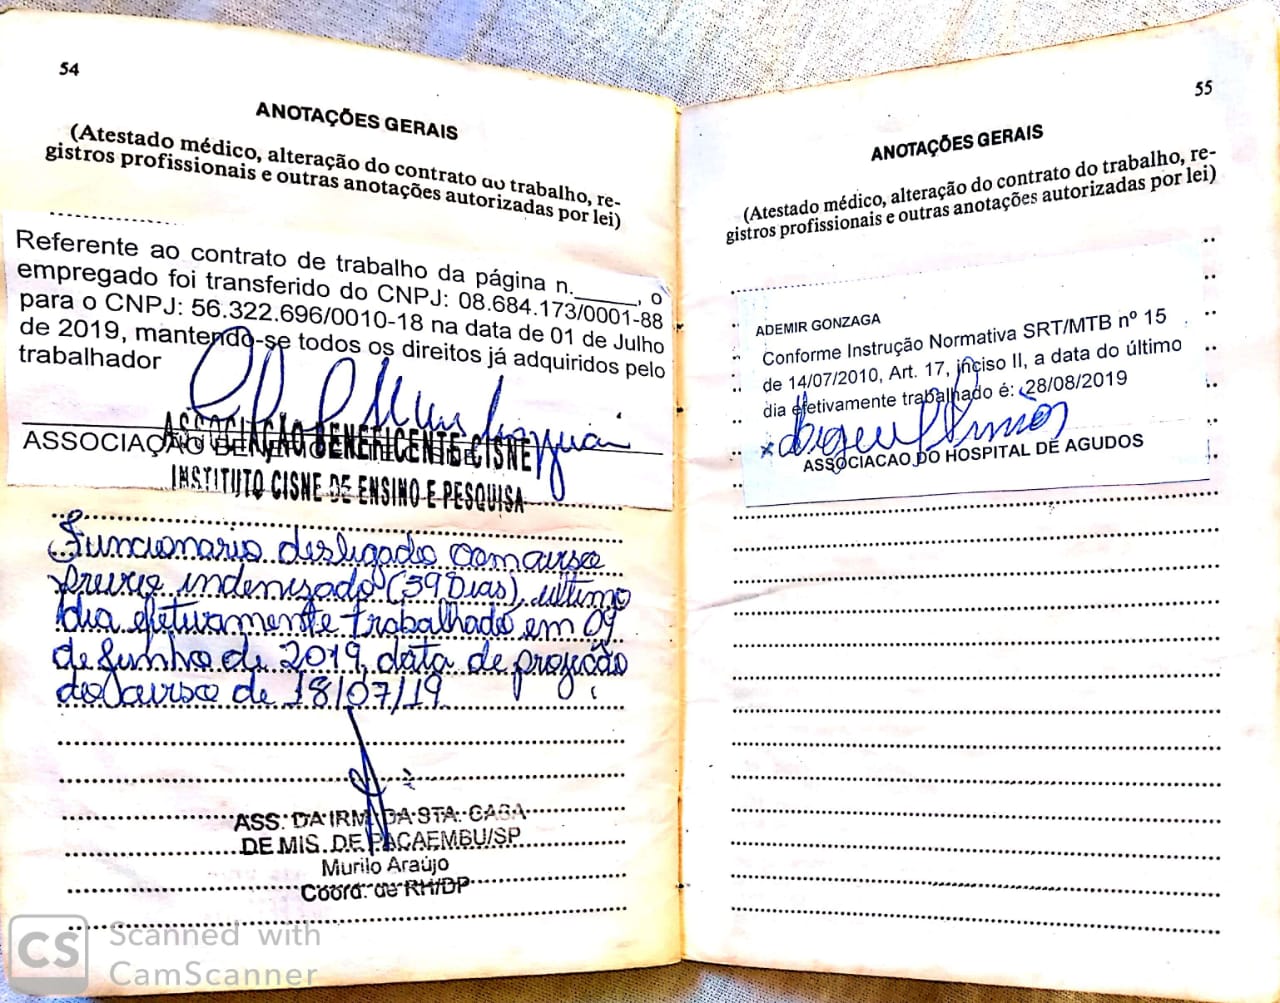 54
ANOTAÇÕES GERAIS
(Atestado médico, alteração do contrato ao trabalho, re-
gistros profissionais e outras anotações autorizadas por lei)
Referente ao contrato de trabalho da página n._____, o
empregado foi transferido do CNPJ: 08.684.173/0001-88
para o CNPJ: 56.322.696/0010-18 na data de 01 de Julho
de 2019, mantendo-se todos os direitos já adquiridos pelo
trabalhador
ASSOCIAÇÃO BENEFICENTE CISNE
ASSOCIAÇÃO
INSTITUTO CISNE DE ENSINO E PESQUISA
Funcionario desligado com aviso
previo indenizado (39 Dias), ultimo
dia efetivamente trabalhado em 09
de Junho de 2019, data de projeção
do aviso de 18/07/19
ASS. DA IRM DA STA. CASA
DE MIS. DE PACAEMBU/SP
Murilo Araújo
Coord. de RH/DP
55
ANOTAÇÕES GERAIS
(Atestado médico, alteração do contrato do trabalho, re-
gistros profissionais e outras anotações autorizadas por lei)
ADEMIR GONZAGA
Conforme Instrução Normativa SRT/MTB nº 15
de 14/07/2010, Art. 17, inciso II, a data do último
dia efetivamente trabalhado é: 28/08/2019
ASSOCIACAO DO HOSPITAL DE AGUDOS
CS Scanned with
CamScanner